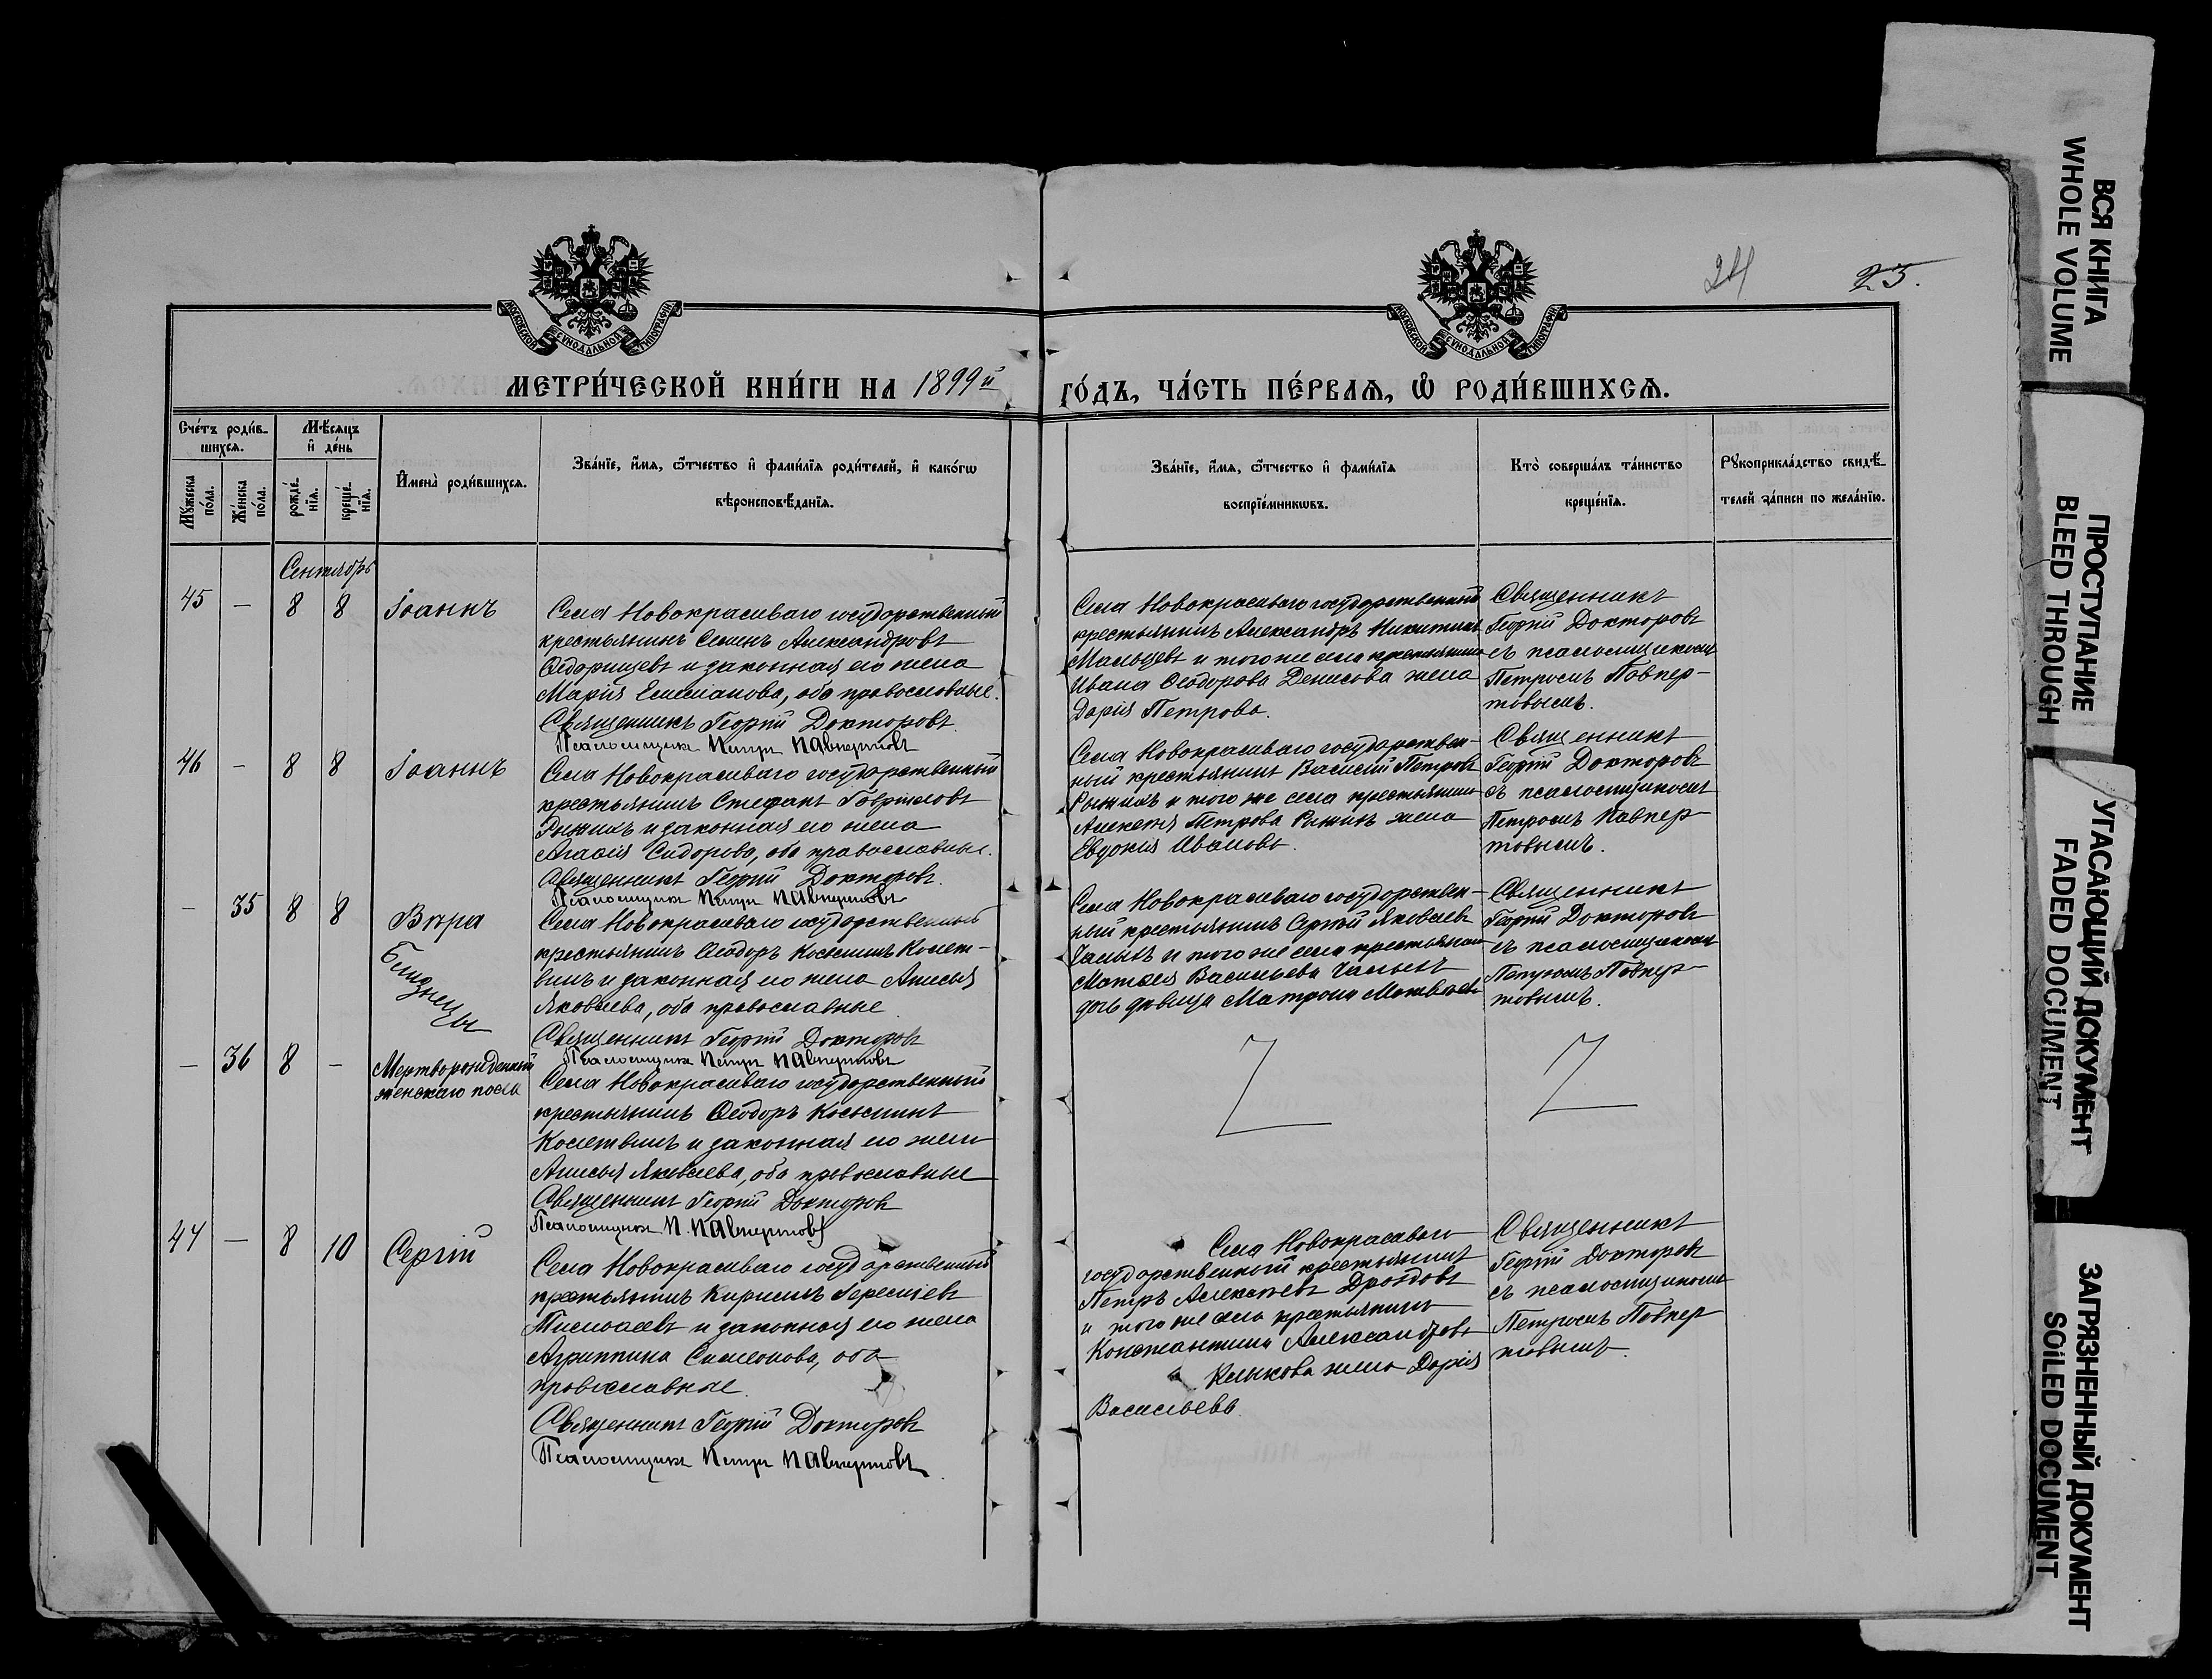 24
25.
МОСКОВСКОЙ СѴНОДАЛЬНОЙ ТИПОГРАФІИ
МОСКОВСКОЙ СѴНОДАЛЬНОЙ ТИПОГРАФІИ
МЕТРИ́ЧЕСКОЙ КНИ́ГИ НА 1899й
ГО́ДЪ, ЧА́СТЬ ПЕ́РВАѦ, Ѡ҆ РОДИ́ВШИХСѦ.
Сче́тъ роди́в-
шихсѧ.
Мѣ́сѧцъ
и҆ де́нь
Мꙋ́жеска
по́ла.
Же́нска
по́ла.
рожде́-
нїѧ.
креще́-
нїѧ.
И҆мена̀ роди́вшихсѧ.
Зва́нїе, и҆́мѧ, ѻ҆́тчество и҆ фами́лїѧ роди́телей, и҆ како́гѡ
вѣроисповѣ́данїѧ.
Зва́нїе, и҆́мѧ, ѻ҆́тчество и҆ фами́лїѧ
воспрїе́мникѡвъ.
Кто̀ соверша́лъ та́инство
креще́нїѧ.
Рꙋкоприкла́дство свидѣ́-
телей за́писи по жела́нїю.
Сентябрь
45 — 8 8 Іоаннъ
Села Новокрасиваго государственный
крестьянинъ Семенъ Александровъ
и законная его жена
Марія Емиліанова, оба православные.
Священникъ Георгій Докторовъ
Псаломщикъ Петръ Павпертовъ
Села Новокрасиваго государственный
крестьянинъ Александръ Никитинъ
Мальцевъ и того же села крестьянина
Ивана Ѳеодорова Денисова жена
Дарія Петрова.
Священникъ
Георгій Докторовъ
съ псаломщикомъ
Петромъ Павпер-
товымъ.
46 — 8 8 Іоаннъ
Села Новокрасиваго государственный
крестьянинъ Стефанъ Гавріиловъ
Рыжихъ и законная его жена
Агаѳія Сидорова, оба православные.
Священникъ Георгій Докторовъ
Псаломщикъ Петръ Павпертовъ
Села Новокрасиваго государствен-
ный крестьянинъ Василій Петровъ
Рыжихъ и того же села крестьянина
Алексѣя Петрова жена
Евдокія Иванова.
Священникъ
Георгій Докторовъ
съ псаломщикомъ
Петромъ Павпер-
товымъ.
— 35 8 8 Вѣра
Близнецы
Села Новокрасиваго государственный
крестьянинъ Ѳеодоръ Косьминъ Комет-
винъ и законная его жена Анисья
Яковлева, оба православные
Священникъ Георгій Докторовъ
Псаломщикъ Петръ Павпертовъ
Села Новокрасиваго государствен-
ный крестьянинъ Сергій Яковлевъ
и того же села крестьянина
Матѳея Васильева
дочь дѣвица Матрона Матвѣева
Священникъ
Георгій Докторовъ
съ псаломщикомъ
Петромъ Павпер-
товымъ.
— 36 8 — Мертворожденный
женскаго пола
Села Новокрасиваго государственный
крестьянинъ Ѳеодоръ Косьминъ
Кометвинъ и законная его жена
Анисья Яковлева, оба православные
Священникъ Георгій Докторовъ
Псаломщикъ П. Павпертовъ
47 — 8 10 Сергій
Села Новокрасиваго государственный
крестьянинъ Кириллъ
и законная его жена
Агриппина Симеонова, оба
православные.
Священникъ Георгій Докторовъ
Псаломщикъ Петръ Павпертовъ
Села Новокрасиваго
государственный крестьянинъ
Петръ Алексѣевъ Дроздовъ
и того же села крестьянина
Константина Александрова
Клыкова жена Дарія
Васильева
Священникъ
Георгій Докторовъ
съ псаломщикомъ
Петромъ Павпер-
товымъ.
ВСЯ КНИГА
WHOLE VOLUME
ПРОСТУПАНИЕ
BLEED THROUGH
УГАСАЮЩИЙ ДОКУМЕНТ
FADED DOCUMENT
ЗАГРЯЗНЕННЫЙ ДОКУМЕНТ
SOILED DOCUMENT